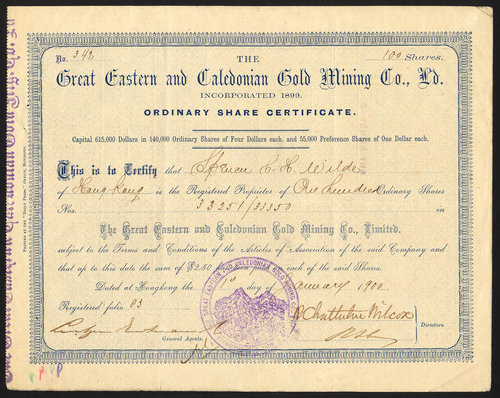 No. 343 THE 100 Shares.
Great Eastern and Caledonian Gold Mining Co., Ld.
INCORPORATED 1899.
ORDINARY SHARE CERTIFICATE.
Capital 615,000 Dollars in 140,000 Ordinary Shares of Four Dollars each, and 55,000 Preference Shares of One Dollar each.
This is to Certify that Wilde
of Hong Kong is the Registered Proprietor of One hundred Ordinary Shares
Nos. 33251/33350 in
The Great Eastern and Caledonian Gold Mining Co., Limited.
subject to the Terms and Conditions of the Articles of Association of the said Company and
that up to this date the sum of $2.50 has been paid each of the said Shares.
Dated at Hongkong the 1st day of January 1900.
Registered folio 83
Chatterton Wilcox
Directors.
General Agents.
GREAT EASTERN AND CALEDONIAN GOLD MINING